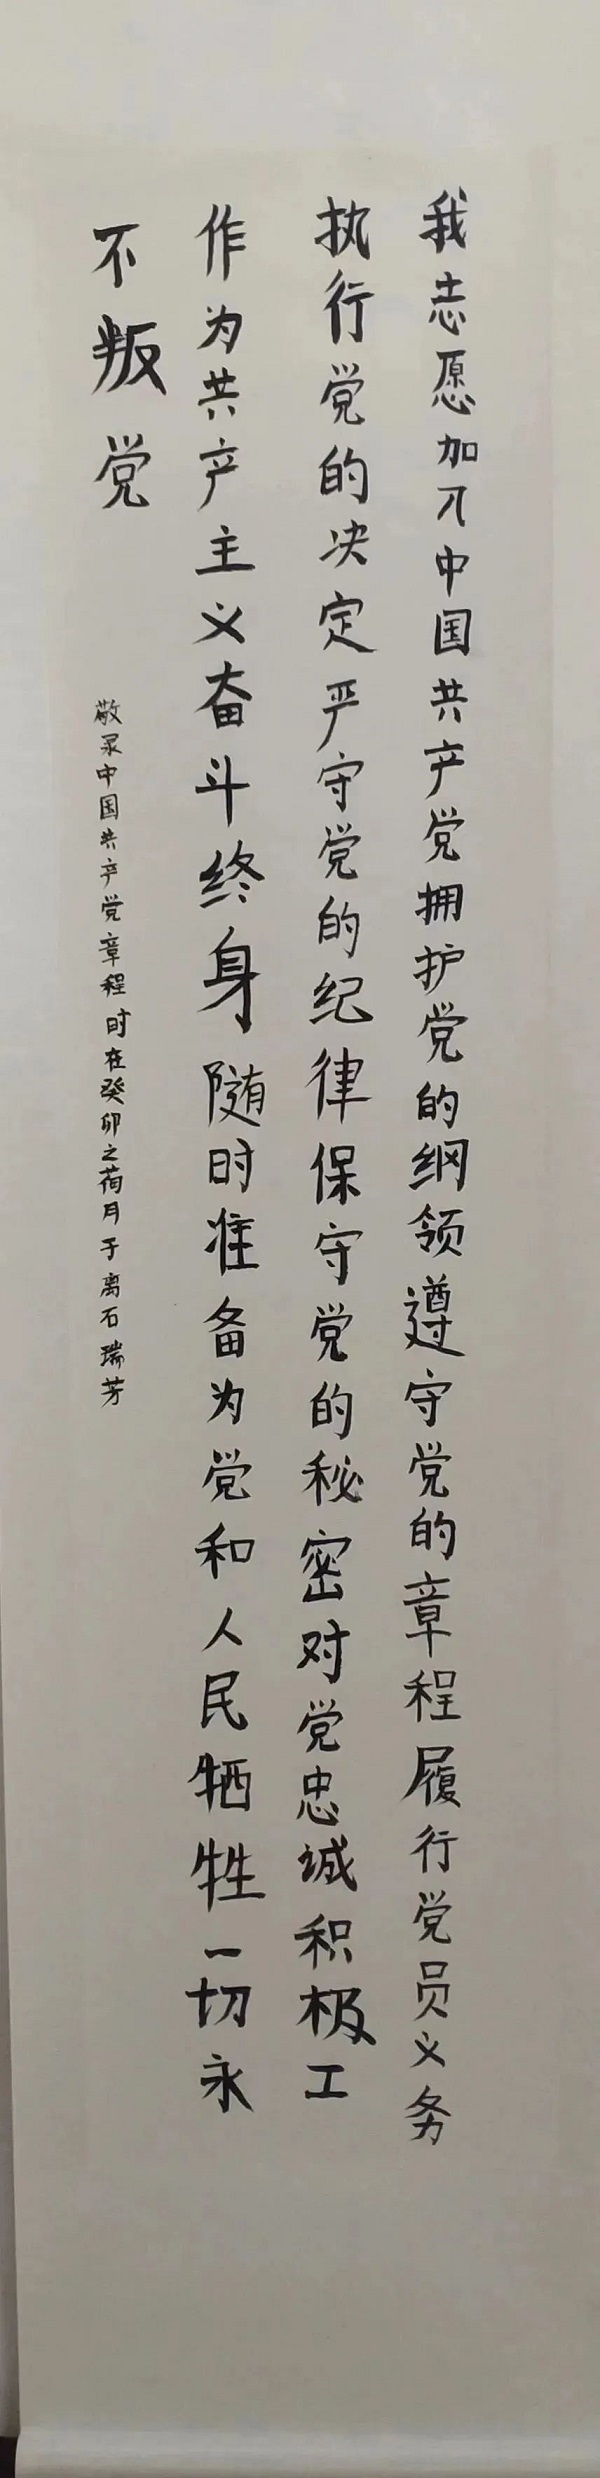 我志愿加入中国共产党拥护党的纲领遵守党的章程履行党员义务
执行党的决定严守党的纪律保守党的秘密对党忠诚积极工
作为共产主义奋斗终身随时准备为党和人民牺牲一切永
不叛党
敬录中国共产党章程时在癸卯之荷月于离石瑞芳